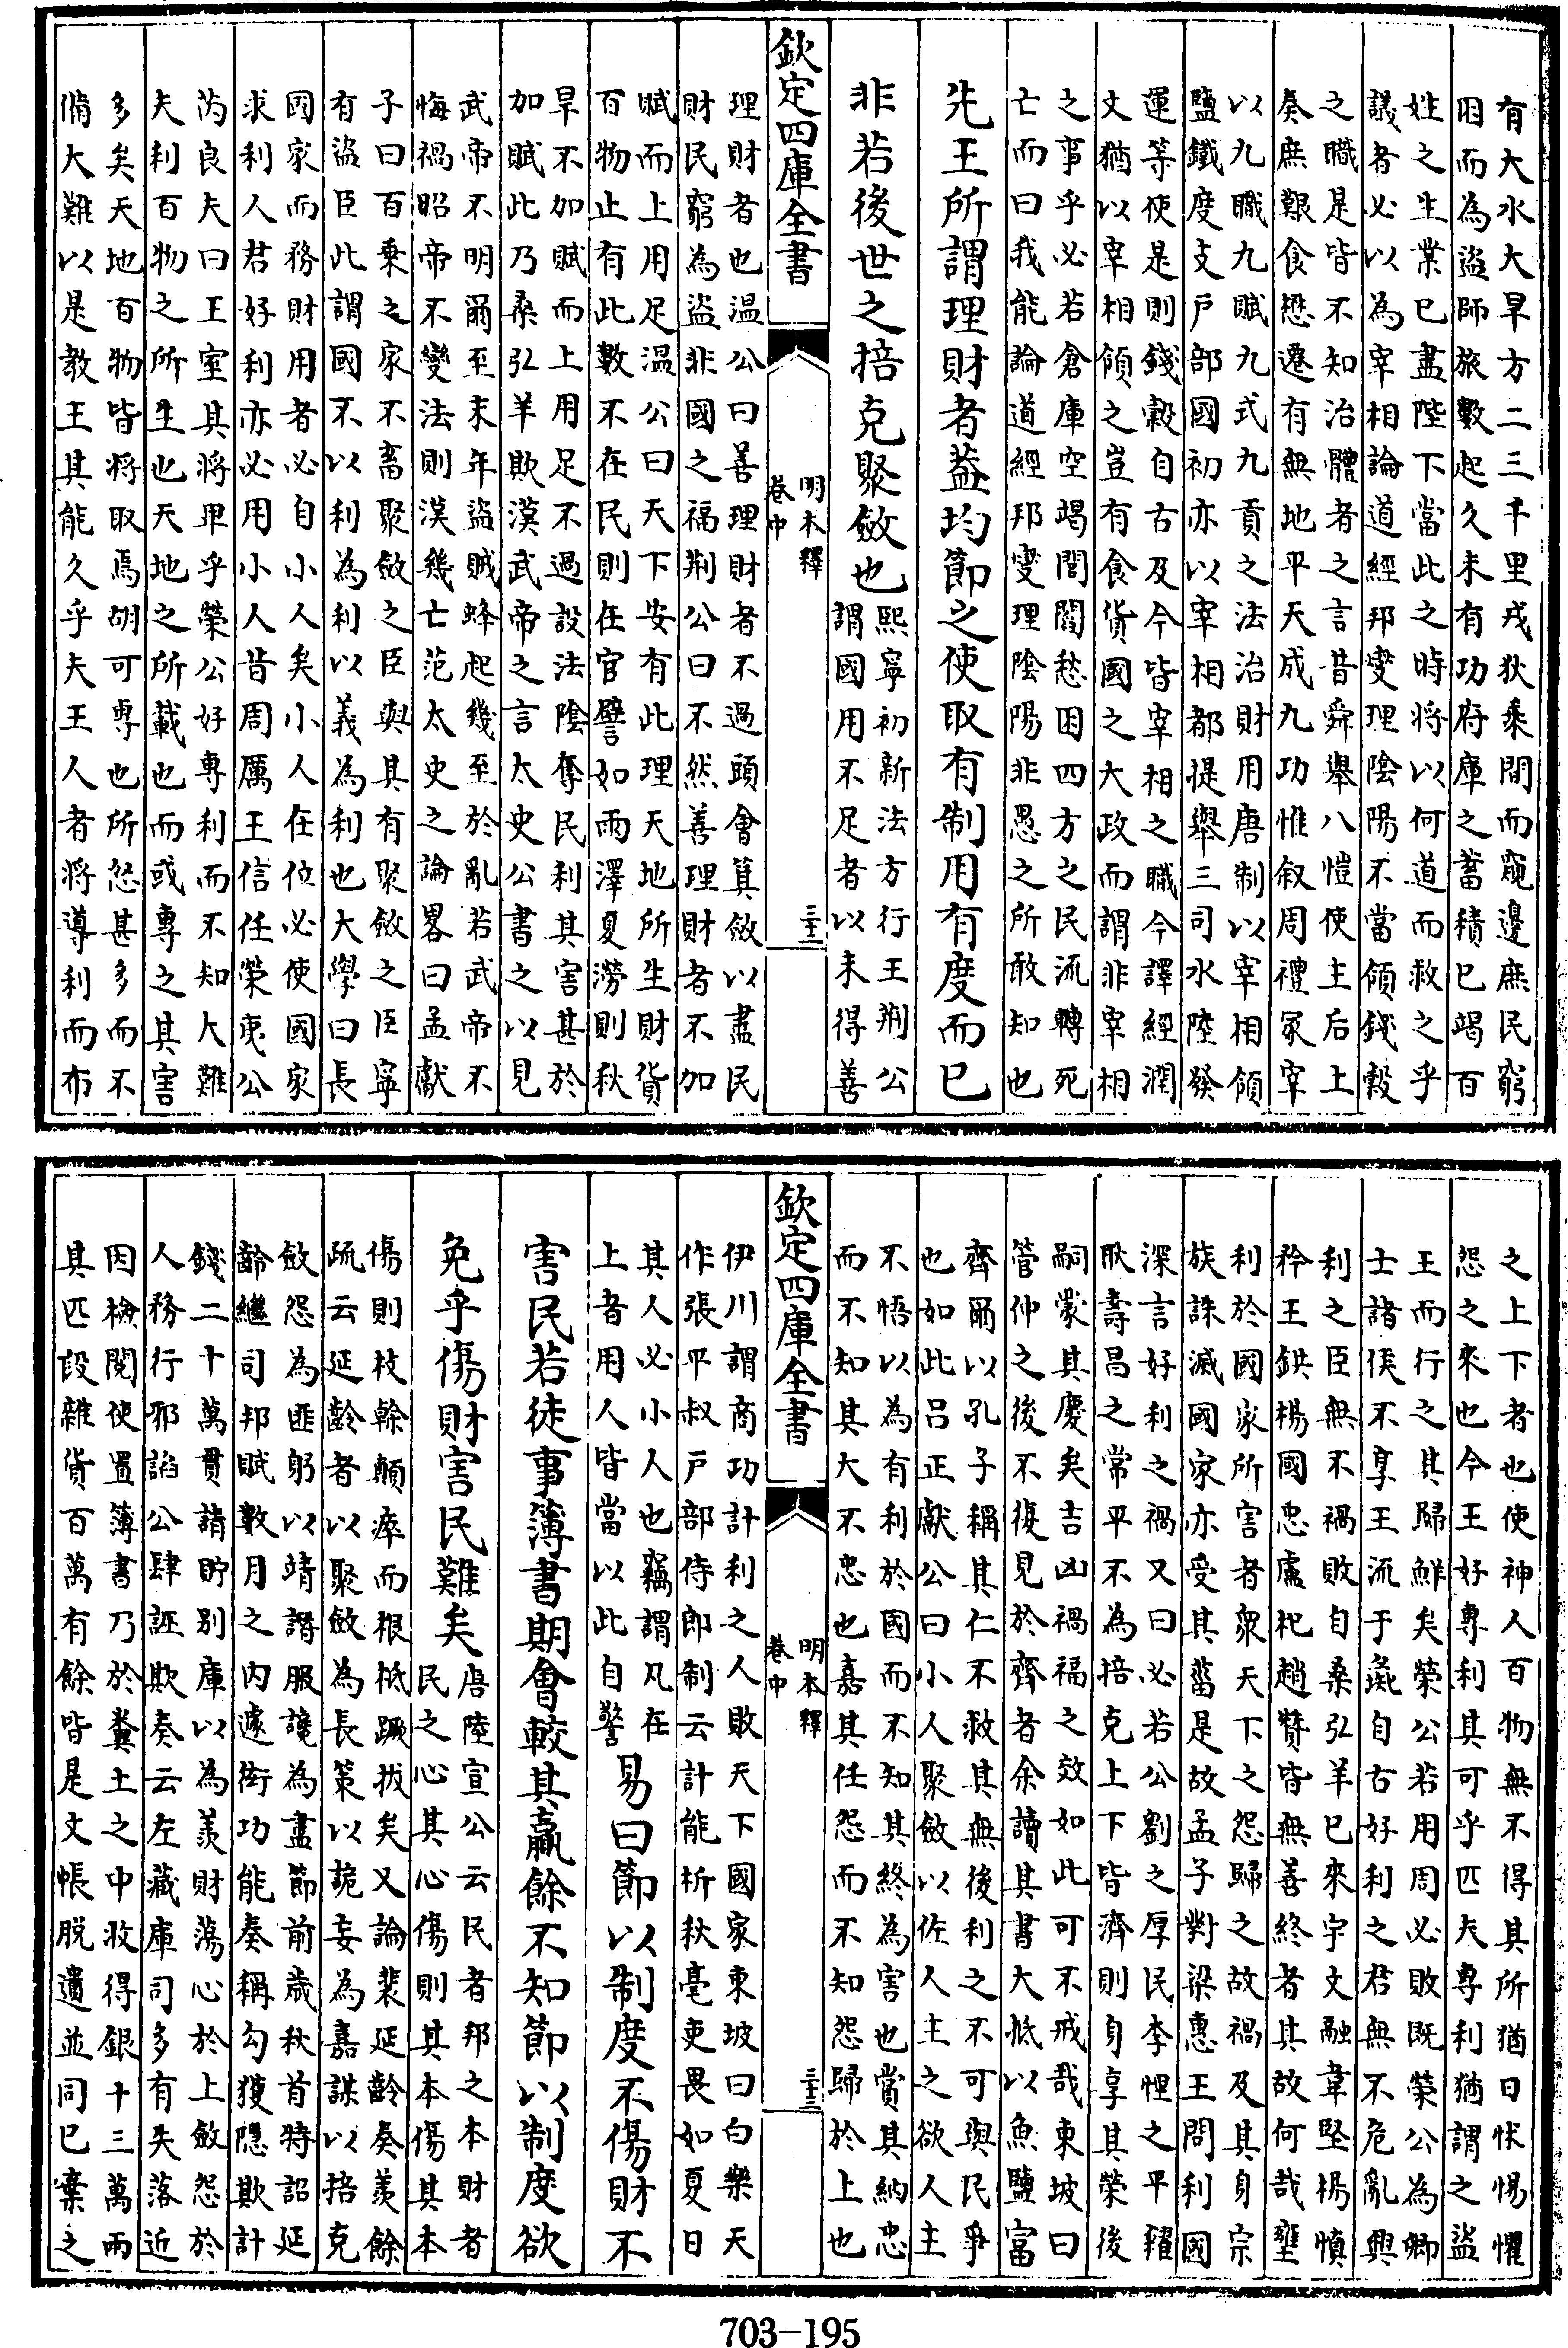 有大水大旱方二三千里戎狄乗間而窺邊庶民窮
困而為盜師旅數起久未有功府庫之蓄積已竭百
姓之生業已盡陛下當此之時将以何道而救之乎
議者必以為宰相論道經邦燮理隂陽不當領錢穀
之職是皆不知治體者之言昔舜舉八愷使主后土
奏庶艱食懋遷有無地平天成九功惟叙周禮冢宰
以九職九賦九式九貢之法治財用唐制以宰相領
鹽鐵度支戸部國初亦以宰相都提舉三司水陸發
運等使是則錢穀自古及今皆宰相之職今譯經潤
文猶以宰相領之豈有食貨國之大政而謂非宰相
之事乎必若倉庫空竭閭閻愁困四方之民流轉死
亡而曰我能論道經邦燮理隂陽非愚之所敢知也
先王所謂理財者葢均節之使取有制用有度而已
非若後世之掊克聚斂也
熙寧初新法方行王荆公
謂國用不足者以未得善
欽定四庫全書
明本釋
卷中
三十二
理財者也温公曰善理財者不過頭會箕斂以盡民
財民窮為盜非國之福荆公曰不然善理財者不加
賦而上用足温公曰天下安有此理天地所生財貨
百物止有此數不在民則在官譬如雨澤夏澇則秋
旱不加賦而上用足不過設法隂奪民利其害甚於
加賦此乃桑弘羊欺漢武帝之言太史公書之以見
武帝不明爾至末年盜賊蜂起幾至於亂若武帝不
悔禍昭帝不變法則漢幾亡范太史之論畧曰孟獻
子曰百乗之家不畜聚斂之臣與其有聚斂之臣寧
有盜臣此謂國不以利為利以義為利也大學曰長
國家而務財用者必自小人矣小人在位必使國家
求利人君好利亦必用小人昔周厲王信任榮夷公
芮良夫曰王室其将卑乎榮公好專利而不知大難
夫利百物之所生也天地之所載也而或專之其害
多矣天地百物皆将取焉胡可専也所怒甚多而不
備大難以是教王其能久乎夫王人者将導利而布
之上下者也使神人百物無不得其所猶日怵惕懼
怨之來也今王好專利其可乎匹夫専利猶謂之盜
王而行之其歸鮮矣榮公若用周必敗既榮公為卿
士諸侯不享王流于彘自古好利之君無不危亂興
利之臣無不禍敗自桑弘羊已來宇文融韋堅楊慎
矜王鉷楊國忠盧杞趙贊皆無善終者其故何哉壅
利於國家所害者衆天下之怨歸之故禍及其身宗
族誅滅國家亦受其菑是故孟子對梁惠王問利國
深言好利之禍又曰必若公劉之厚民李悝之平糴
耿壽昌之常平不為掊克上下皆濟則身享其榮後
嗣蒙其慶矣吉凶禍福之效如此可不戒哉東坡曰
管仲之後不復見於齊者余讀其書大抵以魚鹽富
齊爾以孔子稱其仁不救其無後利之不可與民爭
也如此吕正獻公曰小人聚斂以佐人主之欲人主
不悟以為有利於國而不知其終為害也賞其納忠
而不知其大不忠也嘉其任怨而不知怨歸於上也
欽定四庫全書
明本釋
卷中
三十三
伊川謂商功計利之人敗天下國家東坡曰白樂天
作張平叔戸部侍郎制云計能析秋毫吏畏如夏日
其人必小人也竊謂凡在
上者用人皆當以此自警
易曰節以制度不傷財不
害民若徒事簿書期會較其贏餘不知節以制度欲
免乎傷財害民難矣
唐陸宣公云民者邦之本財者
民之心其心傷則其本傷其本
傷則枝榦顛瘁而根柢蹶拔矣又論裴延齡奏羨餘
疏云延齡者以聚斂為長策以詭妄為嘉謀以掊克
斂怨為匪躬以靖譖服讒為盡節前歳秋首特詔延
齡繼司邦賦數月之内遽衒功能奏稱勾獲隱欺計
錢二十萬貫請貯别庫以為羨財蕩心於上斂怨於
人務行邪諂公肆誣欺奏云左藏庫司多有失落近
因檢閲使置簿書乃於糞土之中收得銀十三萬兩
其匹段雜貨百萬有餘皆是文帳脱遺並同已棄之
703-195